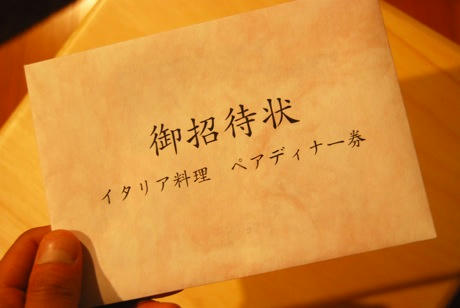 御招待状
イタリア料理　ペアディナー券